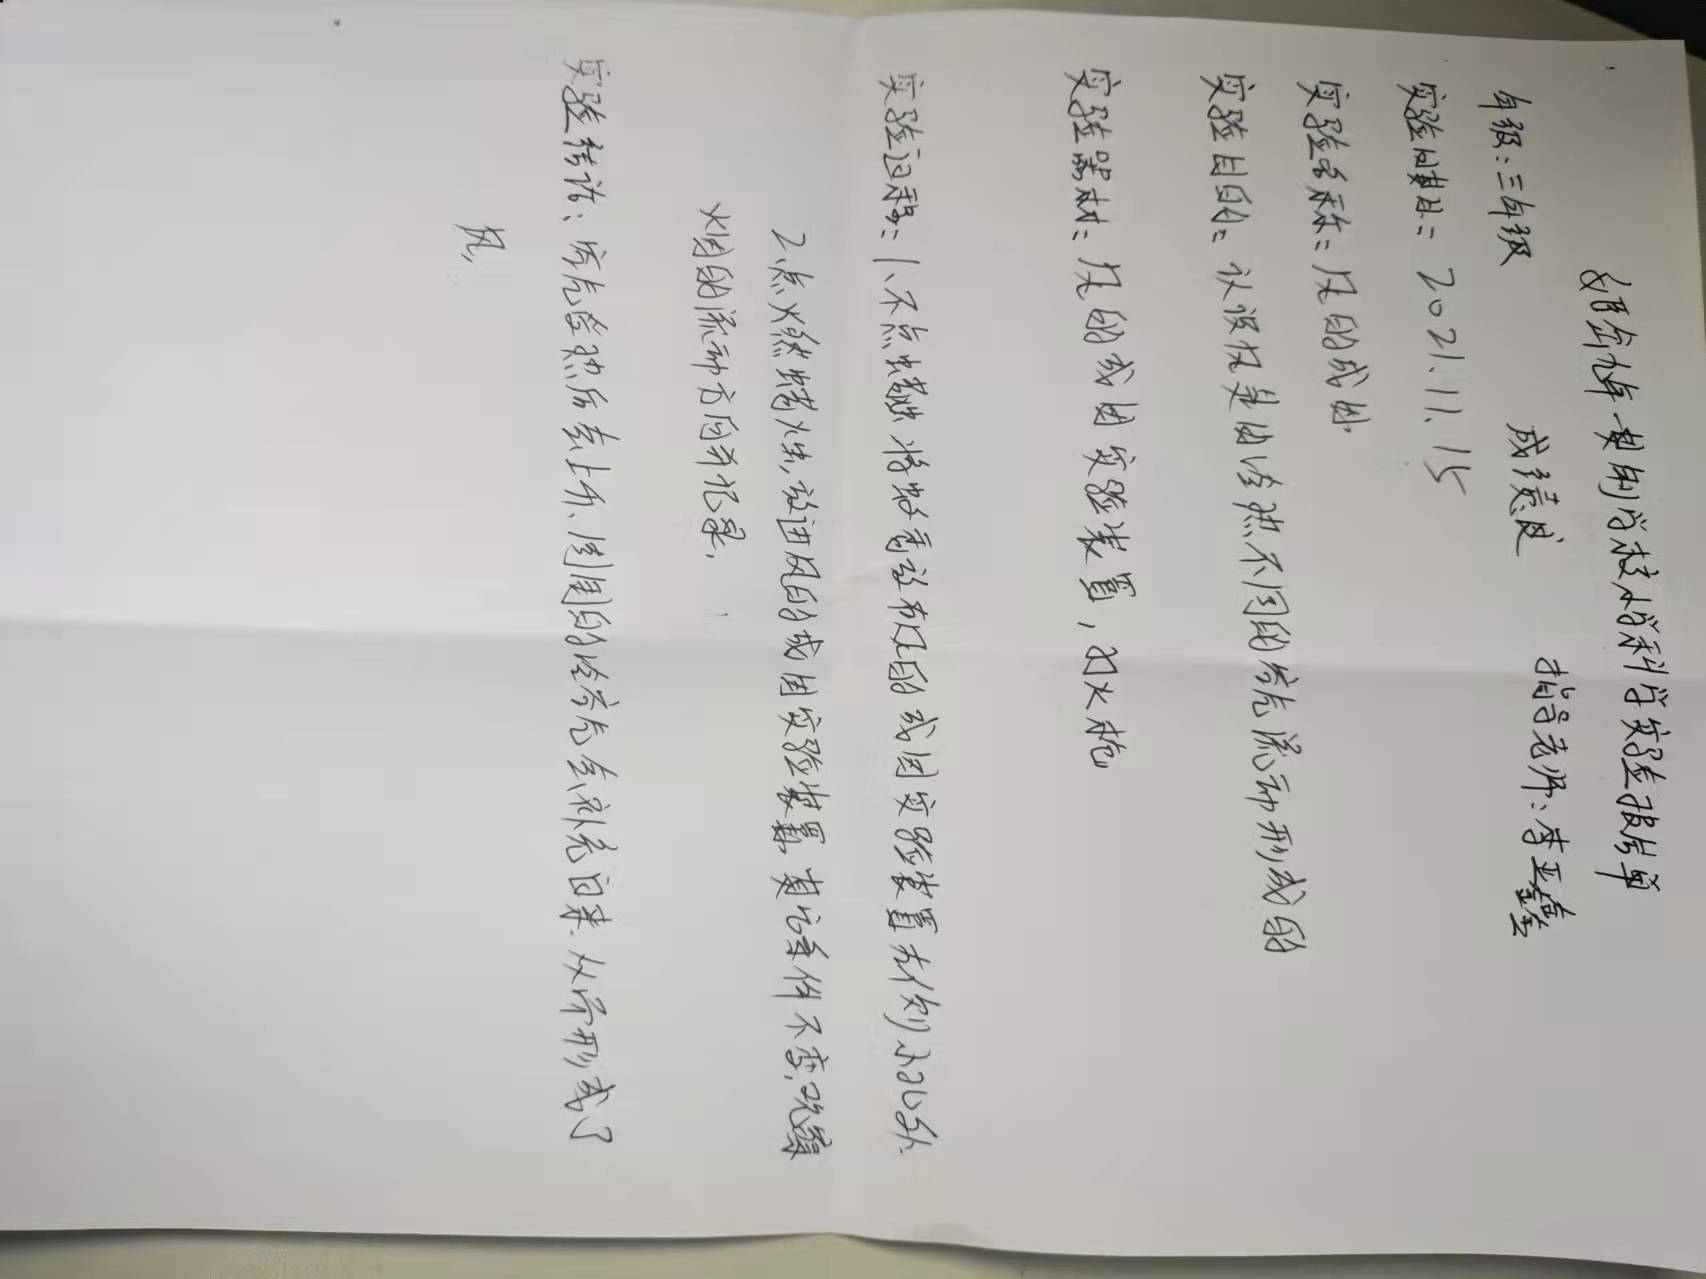 实验报告单
年级：三年级 成绩 指导老师：李亚鑫
实验时间：2021.11.15
实验名称：风的成因
实验目的：认识风是由冷热不同的空气流动形成的
实验器材：风的成因实验装置，打火枪
实验过程：1、不点蜡烛将蚊香放在风的成因实验装置左侧小孔外
2、点火燃蜡烛，放进风的成因实验装置，其它条件不变，观察
烟的流动方向并记录，
实验结论：空气受热后会上升、周围的冷空气会补充回来、从而形成了
风，